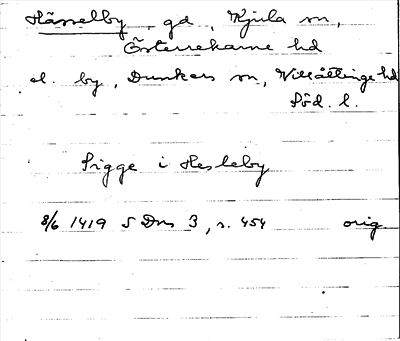 Hässelby, gd, Kjula sn,
Österrekarne hd
el. by, Dunkers sn, Villåttinge hd
Söd. l.
Sigge i Hesleby
8/6 1419 SDns 3, s. 454 orig